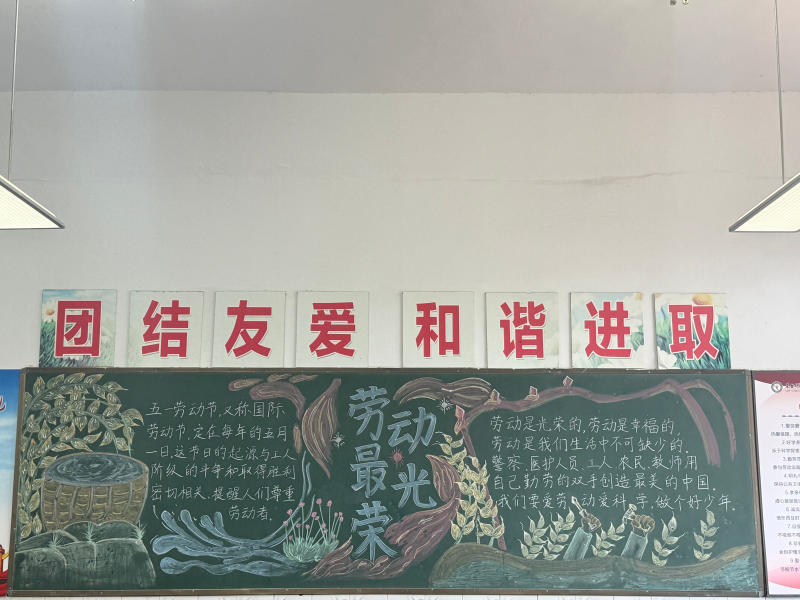 团结友爱 和谐进取
五一劳动节,又称国际
劳动节,定在每年的五月
一日,这节日的起源与工人
阶级的斗争和取得胜利
密切相关,提醒人们尊重
劳动者。
劳动
最光
荣
劳动是光荣的,劳动是幸福的,
劳动是我们生活中不可缺少的,
警察、医护人员、工人、农民、教师,用
自己勤劳的双手创造最美的中国,
我们要爱劳动爱科学,做个好少年。